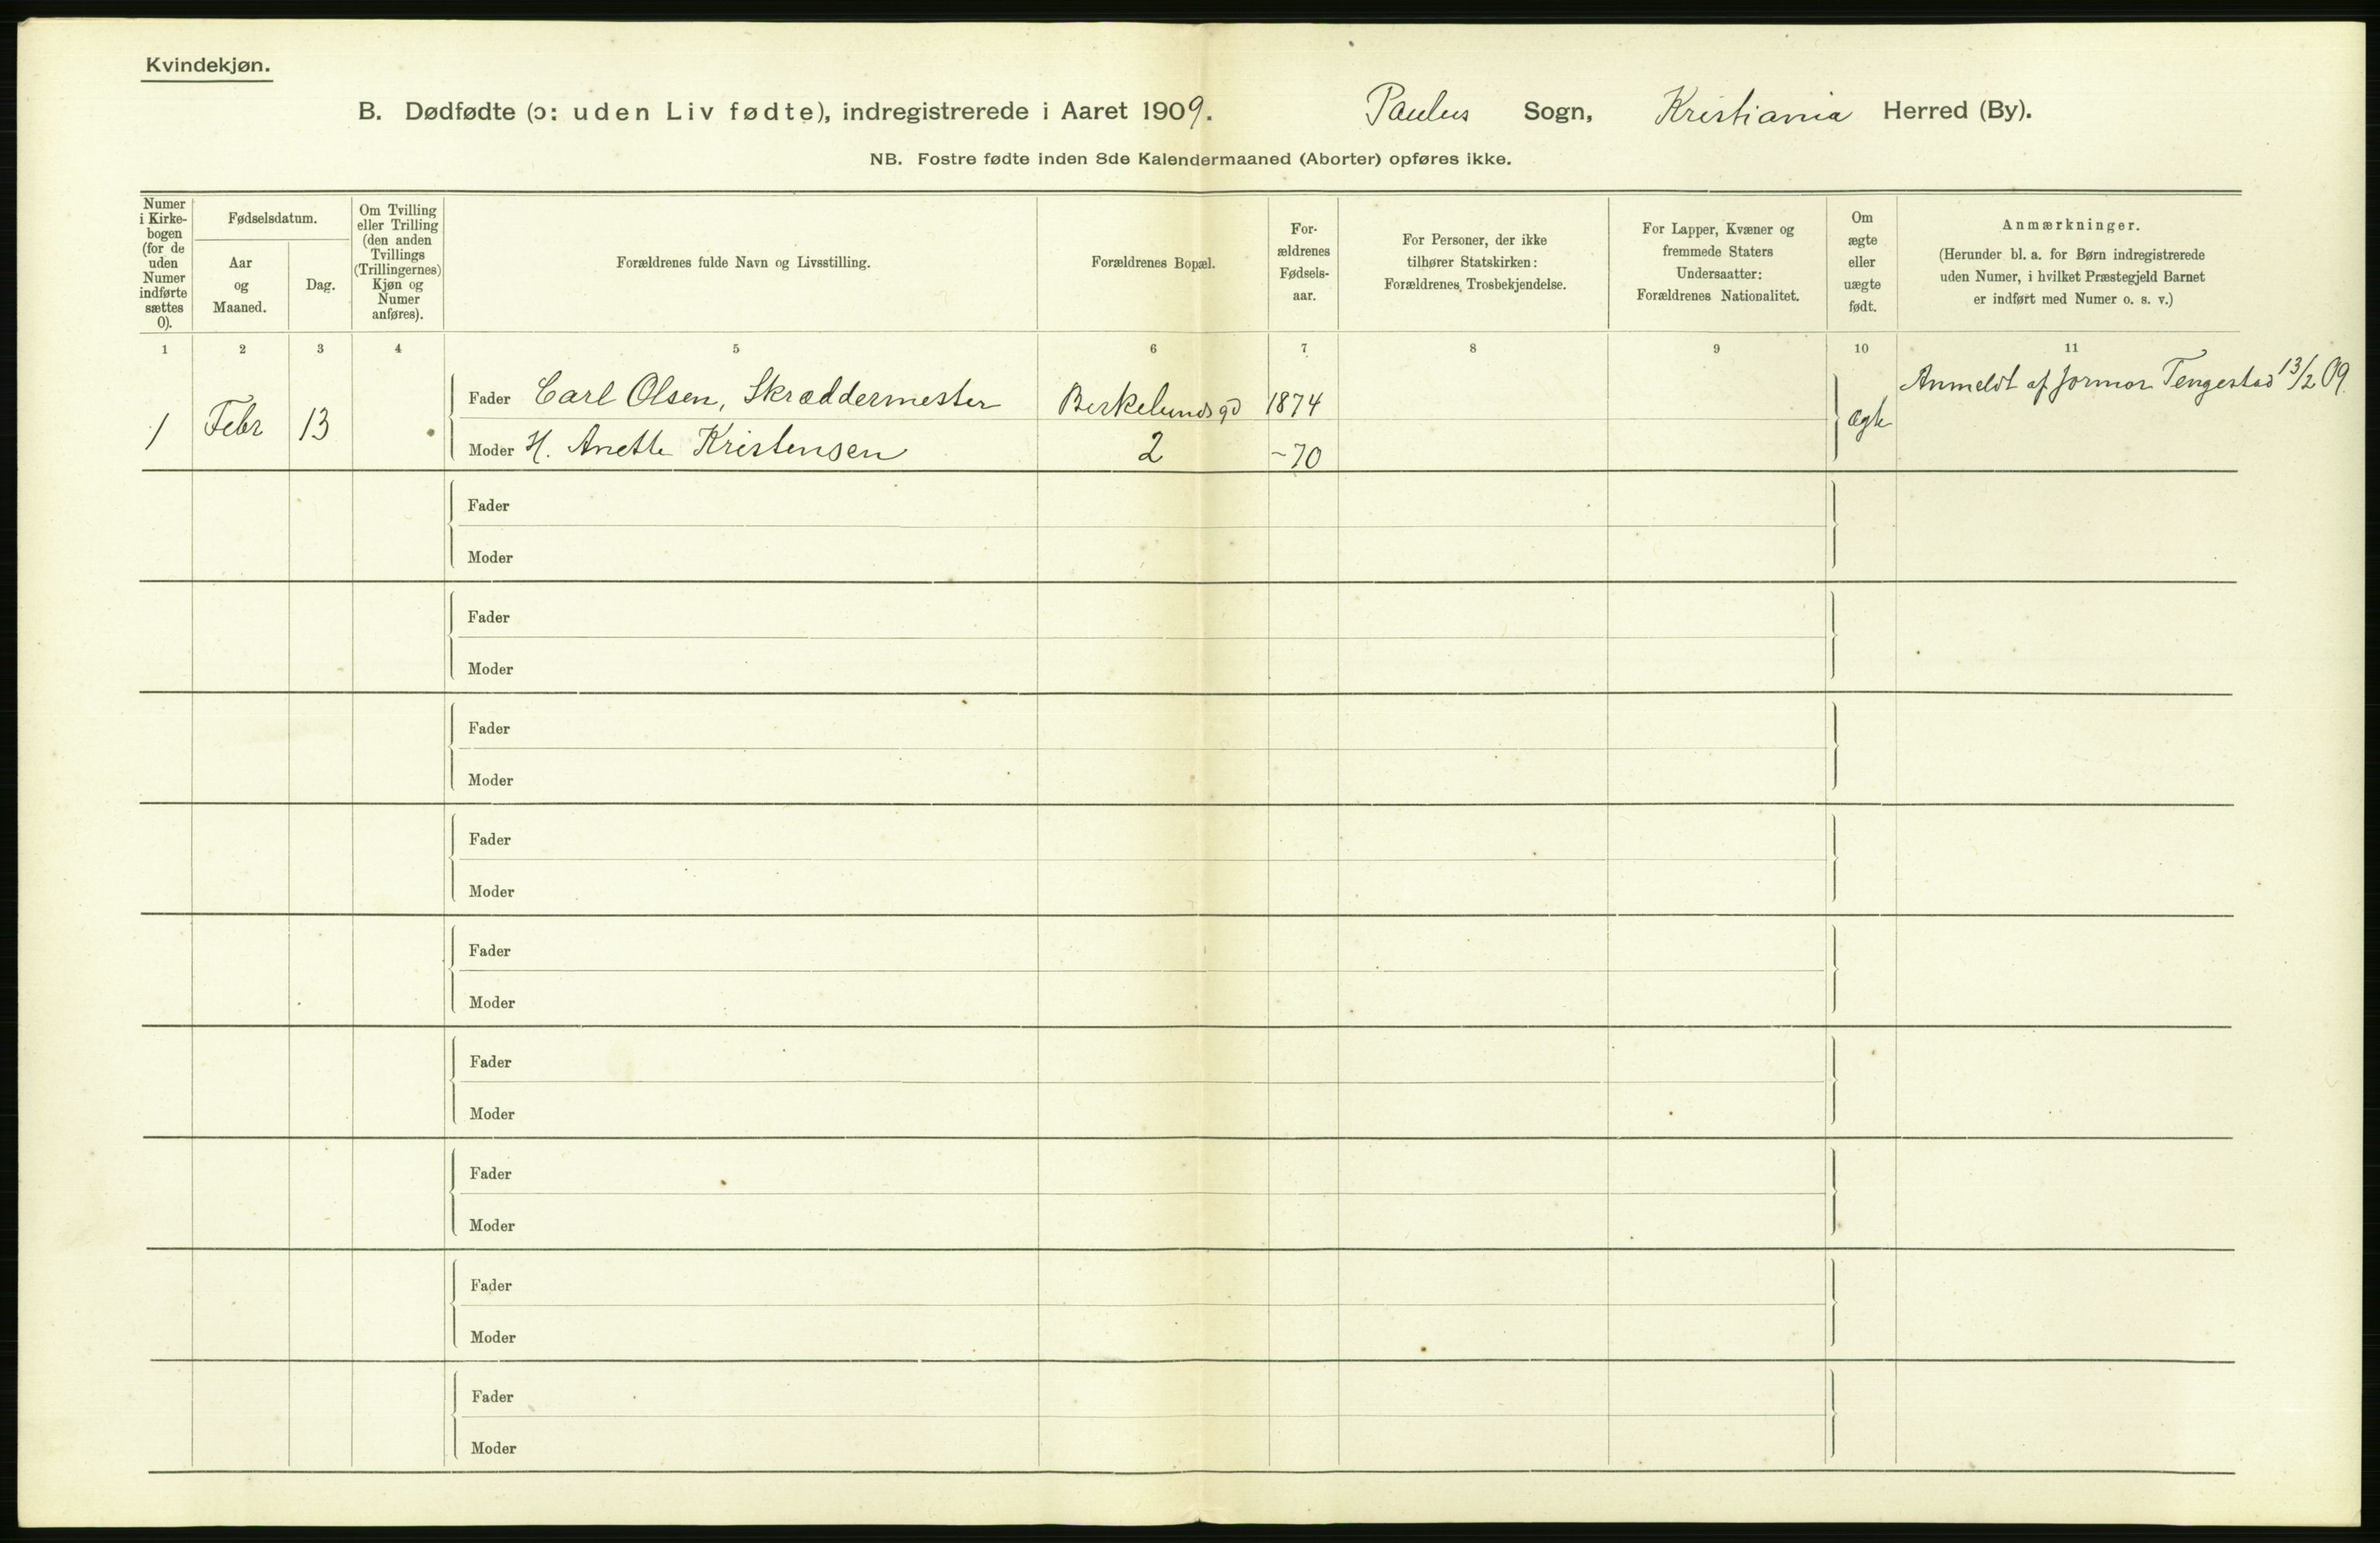 Kvindekjøn.
B. Dødfødte (ɔ: uden Liv fødte), indregistrerede i Aaret 1909. Paulus Sogn, Kristiania Herred (By).
NB. Fostre fødte inden 8de Kalendermaaned (Aborter) opføres ikke.
Numer
i Kirke-
bogen
(for de
uden
Numer
indførte
sættes
0).
Fødselsdatum.
Aar
og
Maaned.
Dag.
Om Tvilling
eller Trilling
(den anden
Tvillings
(Trillingernes)
Kjøn og
Numer
anføres).
Forældrenes fulde Navn og Livsstilling.
Forældrenes Bopæl.
For-
ældrenes
Fødsels-
aar.
For Personer, der ikke
tilhører Statskirken:
Forældrenes Trosbekjendelse.
For Lapper, Kvæner og
fremmede Staters
Undersaatter:
Forældrenes Nationalitet.
Om
ægte
eller
uægte
født.
Anmærkninger.
(Herunder bl. a. for Børn indregistrerede
uden Numer, i hvilket Præstegjeld Barnet
er indført med Numer o. s. v.)
1 2 3 4 5 6 7 8 9 10 11
Anmeldt af Jormor Tengestad 13/2 09.
Fader Carl Olsen, Skræddermester Birkelundsgd 1874
1 Febr 13 ægte
Moder H. Anette Kristensen 2 -70
Fader
Moder
Fader
Moder
Fader
Moder
Fader
Moder
Fader
Moder
Fader
Moder
Fader
Moder
Fader
Moder
Fader
Moder